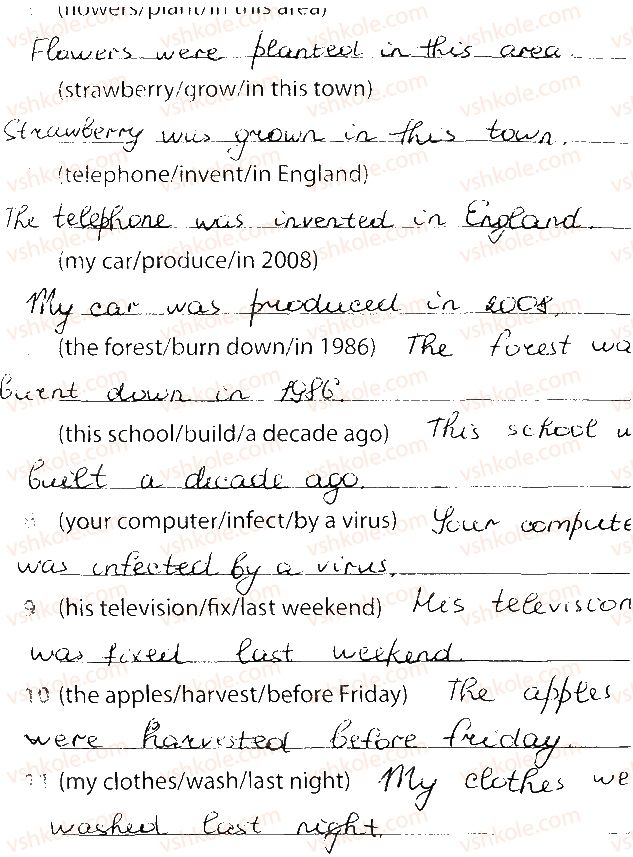 (flowers/plant/in this area)
Flowers were planted in this area
(strawberry/grow/in this town)
Strawberry was grown in this town.
(telephone/invent/in England)
The telephone was invented in England.
(my car/produce/in 2008)
My car was produced in 2008.
(the forest/burn down/in 1986) The forest wa
burnt down in 1986.
(this school/build/a decade ago) This school
built a decade ago.
(your computer/infect/by a virus) Your compute
was infected by a virus.
9 (his television/fix/last weekend) His television
was fixed last weekend.
10 (the apples/harvest/before Friday) The apples
were harvested before friday.
11 (my clothes/wash/last night) My clothes we
washed last night.